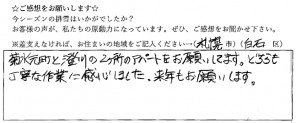 ☆ご感想をお願いします☆
今シーズンの排雪はいかがでしたか？
お客様の声が、私たちの原動力になっています。ぜひ、ご感想をお聞かせ下さい。
※差支えなければ、お住まいの地域をご記入ください→（札幌 市）（白石 区）
菊水元町と澄川の2ヶ所のアパートをお願いしてます。どちらも
丁寧な作業に感謝しました。来年もお願いします。